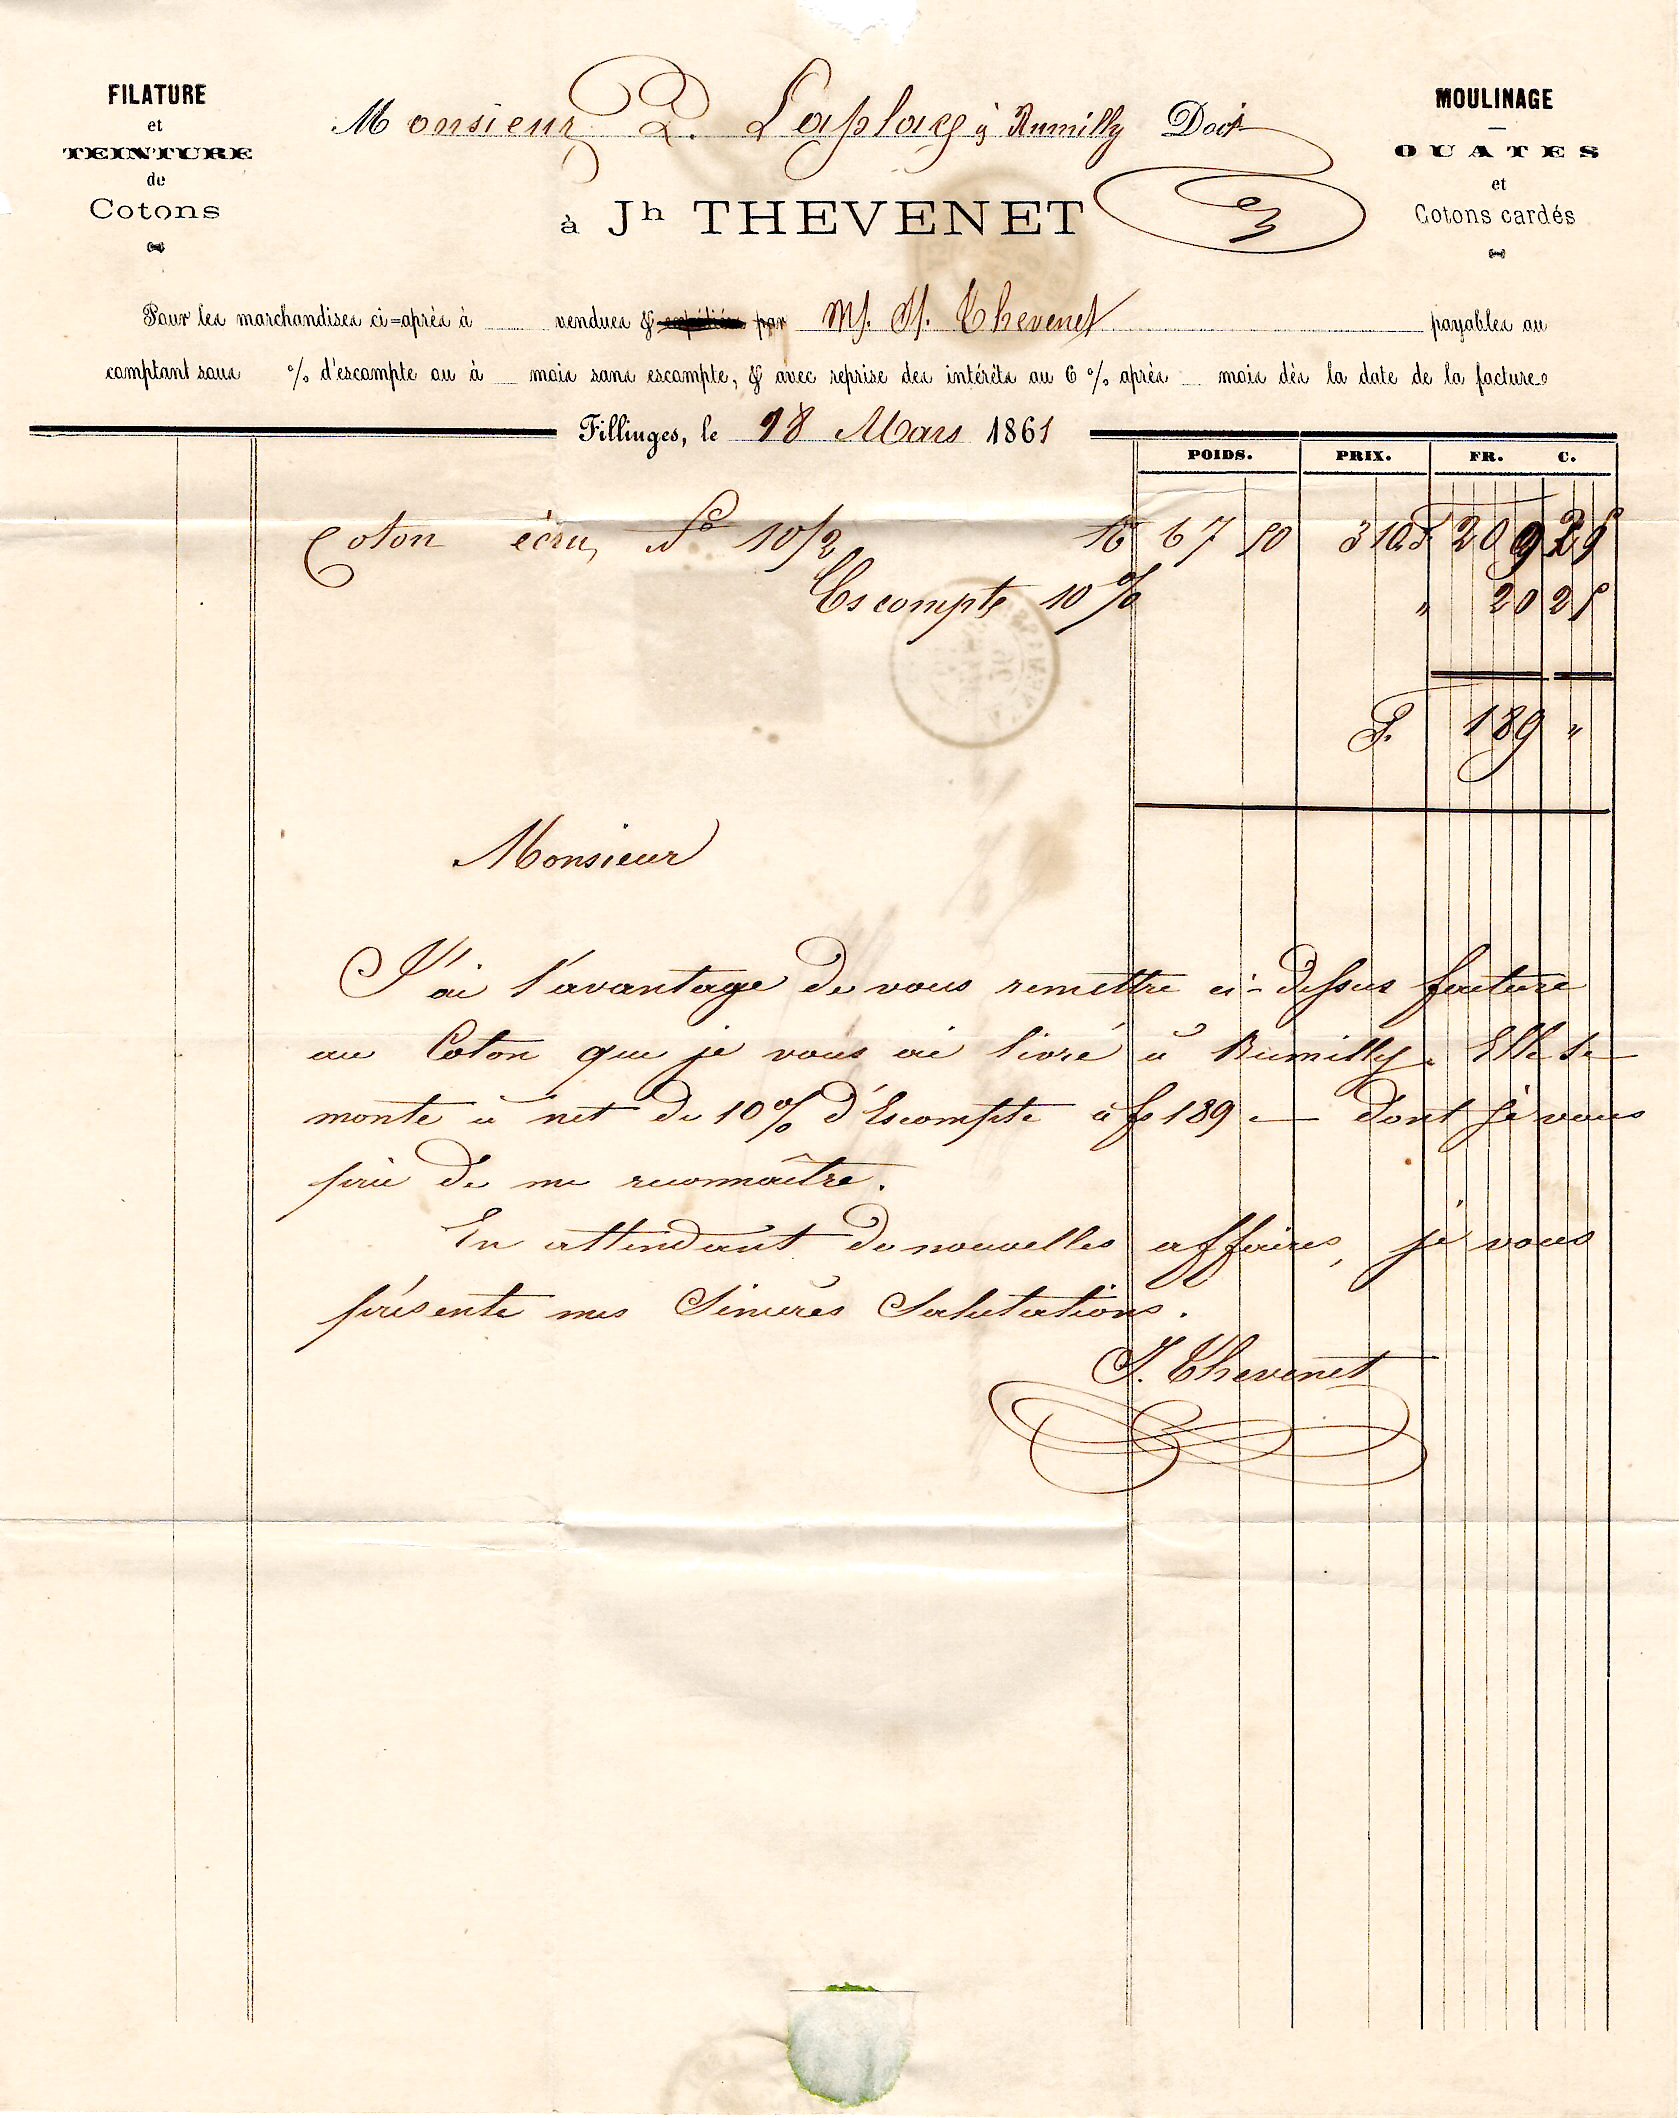 FILATURE
et
TEINTURE
de
Cotons
MOULINAGE
OUATES
et
Cotons cardés
Monsieur P. Laplace à Rumilly Doit
à Jh THEVENET
Pour les marchandises ci=après à vendues & expédiées par Mr. Jh. Thevenet payables au
comptant sous % d'escompte ou à mois sans escompte, & avec reprise des intérêts au 6 % après mois dès la date de la facture.
Fillinges, le 18 Mars 1861
POIDS. PRIX. FR. C.
Coton écru No 10/2 K 67 50 310 F 209 25
Escompte 10 % " 20 25
F. 189 "
Monsieur
J'ai l'avantage de vous remettre ci-dessus facture
au Coton que je vous ai livré à Rumilly. Elle se
monte à net de 10 % d'Escompte à fs 189 — dont je vous
prie de me reconnaître.
En attendant de nouvelles affaires, je vous
présente mes Sincères Salutations.
J. Thevenet